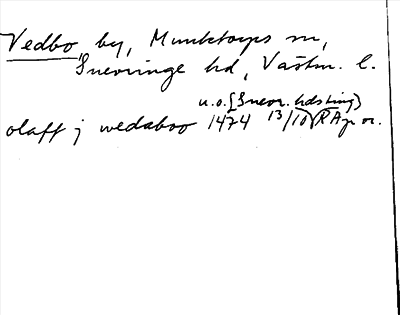 Vedbo by, Munktorps sn,
Snevringe hd, Västm. l.
u.o. (Snevr. hdsting)
olaff j wedaboo 1474 13/10 RAp or.